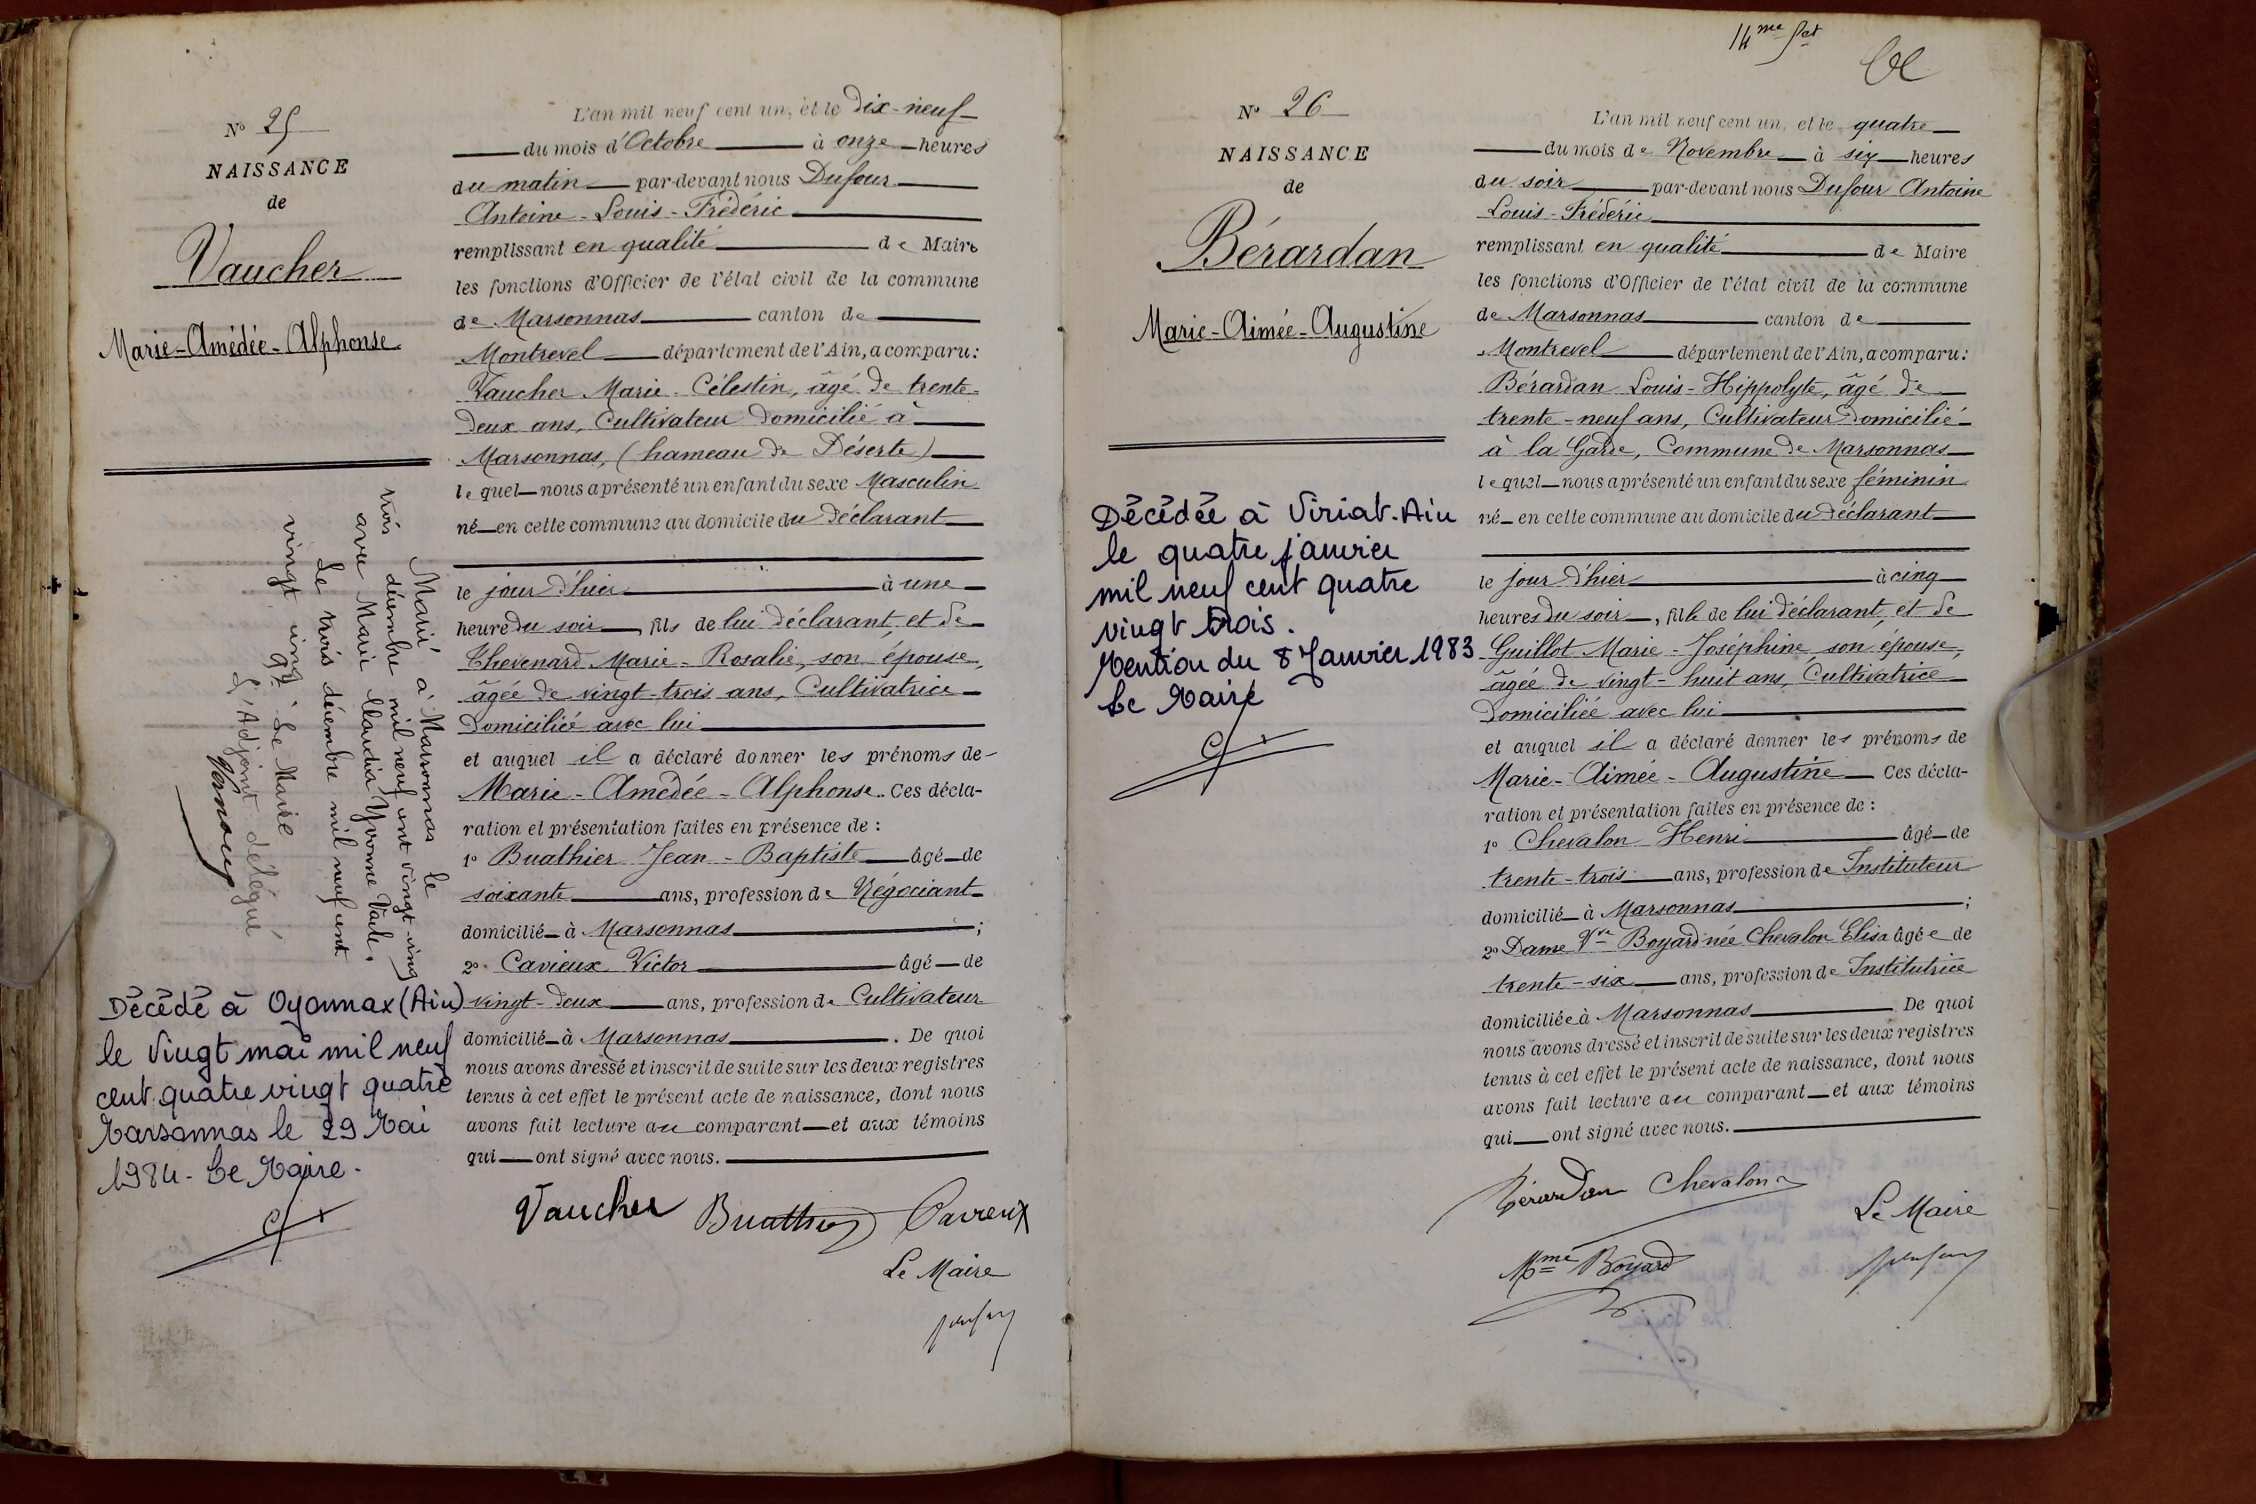 N° 25
NAISSANCE
de
Vaucher
Marie-Amédée-Alphonse
L'an mil neuf cent un, et le dix-neuf
du mois d'Octobre à onze heures
du matin par-devant nous Dufour
Antoine-Louis-Frédéric
remplissant en qualité de Maire
les fonctions d'Officier de l'état civil de la commune
de Marsonnas canton de
Montrevel département de l'Ain, a comparu :
Vaucher Marie-Célestin, âgé de trente-
deux ans, Cultivateur domicilié à
Marsonnas, (hameau de Déserte)
lequel nous a présenté un enfant du sexe Masculin
né en cette commune au domicile du déclarant
le jour d'hier à une
heure du soir, fils de lui déclarant, et de
Thevenard Marie-Rosalie, son épouse,
âgée de vingt-trois ans, Cultivatrice
domiciliée avec lui
et auquel il a déclaré donner les prénoms de
Marie-Amédée-Alphonse. Ces décla-
ration et présentation faites en présence de :
1° Buathier Jean-Baptiste âgé de
soixante ans, profession de Négociant
domicilié à Marsonnas ;
2° Cavieux Victor âgé de
vingt-deux ans, profession de Cultivateur
domicilié à Marsonnas. De quoi
nous avons dressé et inscrit de suite sur les deux registres
tenus à cet effet le présent acte de naissance, dont nous
avons fait lecture au comparant et aux témoins
qui ont signé avec nous.
Vaucher Buathier Cavieux
Le Maire
Marié à Marsonnas le
trois décembre mil neuf cent vingt-cinq
avec Marie Claudia Yvonne
Le trois décembre mil neuf cent
vingt cinq. Le Maire
L'Adjoint délégué
Décédé à Oyonnax (Ain)
le vingt mai mil neuf
cent quatre vingt quatre
Marsonnas le 29 Mai
1984 - Le Maire -
14me
N° 26
NAISSANCE
de
Bérardan
Marie-Aimée-Augustine
L'an mil neuf cent un, et le quatre
du mois de Novembre à six heures
du soir par-devant nous Dufour Antoine
Louis-Frédéric
remplissant en qualité de Maire
les fonctions d'Officier de l'état civil de la commune
de Marsonnas canton de
Montrevel département de l'Ain, a comparu :
Bérardan Louis-Hippolyte, âgé de
trente-neuf ans, Cultivateur domicilié
à la Garde, Commune de Marsonnas
lequel nous a présenté un enfant du sexe féminin
né en cette commune au domicile du déclarant
le jour d'hier à cinq
heures du soir, fille de lui déclarant, et de
Guillot Marie-Joséphine son épouse,
âgée de vingt-huit ans, Cultivatrice
domiciliée avec lui
et auquel il a déclaré donner les prénoms de
Marie-Aimée-Augustine Ces décla-
ration et présentation faites en présence de :
1° Chevalon Henri âgé de
trente-trois ans, profession de Instituteur
domicilié à Marsonnas ;
2° Dame Vve Boyard née Chevalon Élisa âgée de
trente-six ans, profession de Institutrice
domiciliée à Marsonnas De quoi
nous avons dressé et inscrit de suite sur les deux registres
tenus à cet effet le présent acte de naissance, dont nous
avons fait lecture au comparant et aux témoins
qui ont signé avec nous.
Bérardan Chevalon
Le Maire
Mme Boyard
Décédée à Viriat-Ain
le quatre janvier
mil neuf cent quatre
vingt trois.
Mention du 8 Janvier 1983
Le Maire